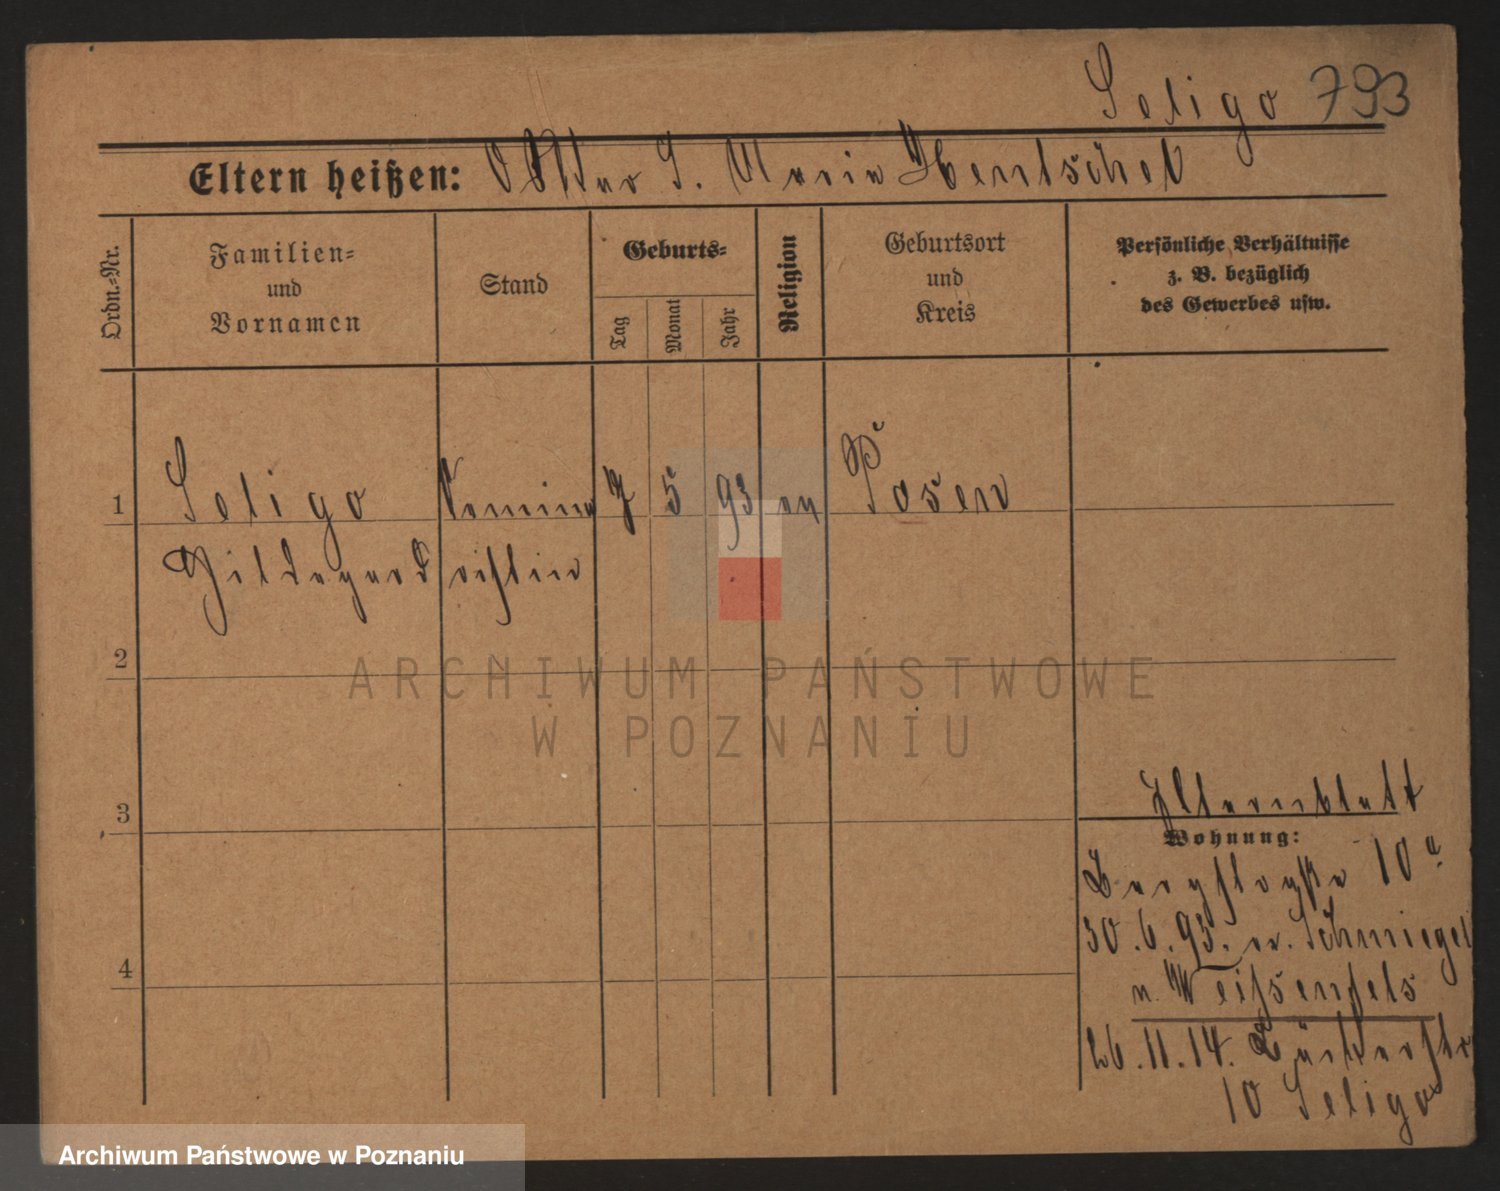 Seligo 793
Eltern heißen: Ottmar S. Maria Hentschel
Ordn.-Nr.
Familien-
und
Vornamen
Stand
Geburts-
Tag
Monat
Jahr
Religion
Geburtsort
und
Kreis
Persönliche Verhältnisse
z. B. bezüglich
des Gewerbes usw.
1 Seligo 5 93 ev Posen
Hildegard
2
3
4
Elternblatt
Wohnung:
10a
30.6.93. Schmiegel
n. Weißenfels
26.11.14.
10 Seligo
ARCHIWUM PAŃSTWOWE
W POZNANIU
Archiwum Państwowe w Poznaniu